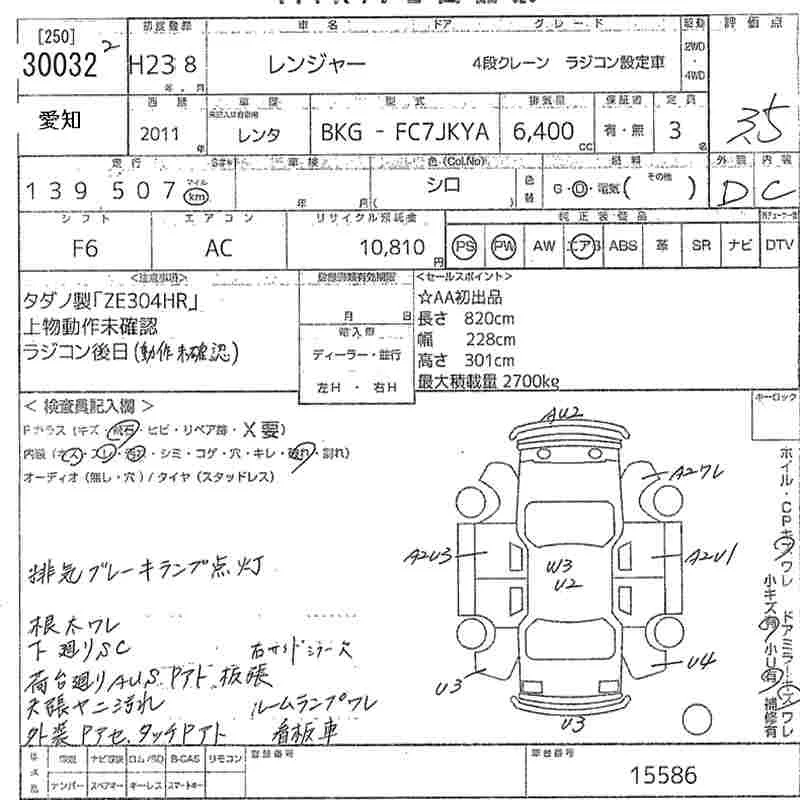 [250]
30032 2
愛知
初度登録 車名 ドア グレード 駆動 評価点
H23 8 年.月
レンジャー 4段クレーン ラジコン設定車
2WD・4WD
3.5
西暦 車歴 型式 排気量 保証書 定員
2011 年 レンタ BKG - FC7JKYA 6,400 cc 有・無 3 名
走行 車検 色(Col.No) 燃料 外装 内装
139 507 マイル km 年 月 シロ 色替 G・D・電気( その他 ) D C
シフト エアコン リサイクル預託金 純正装備品
F6 AC 10,810 円 PS PW AW エアB ABS 革 SR ナビ DTV
<注意事項>
タダノ製「ZE304HR」
上物動作未確認
ラジコン後日(動作未確認)
登録書類有効期限
月 日
輸入車
ディーラー・並行
左H ・ 右H
<セールスポイント>
☆AA初出品
長さ 820cm
幅 228cm
高さ 301cm
最大積載量 2700kg
< 検査員記入欄 >
Fガラス(キズ・飛石・ヒビ・リペア跡・X要)
内装(キズ・スレ・汚れ・シミ・コゲ・穴・キレ・破れ・割れ)
オーディオ(無し・穴)/タイヤ(スタッドレス)
キーロック
排気ブレーキランプ点灯
根太ワレ
下廻りSC 右サイドミラー欠
荷台廻りAUS Pアト 板張
天張ヤニ汚れ ルームランプワレ
外装Pアセ、タッチPアト 看板車
AU2
A2ワレ
A2U3
W3
U2
A2U1
U3
U4
U3
ホイル・CPキズワレ ドアミラーキズワレ
小キズ有 小U有 補修有
登録番号
車台番号
15586
ナビ取説 ロム/SD B-CAS リモコン
ナンバー スペアキー キーレス スマートキー